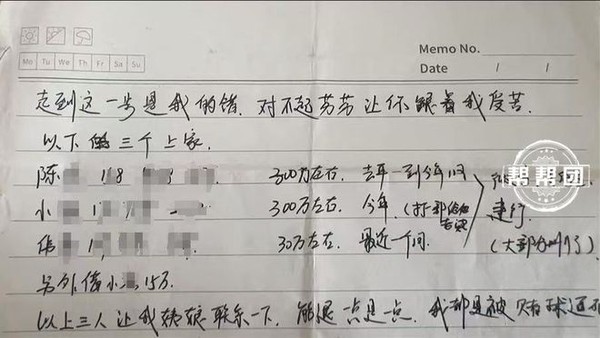 Memo No.
Mo Tu We Th Fr Sa Su
Date / /
走到这一步是我的错．对不起芳芳让你跟着我受苦．
以下的三个上家．
陈 18 300万左右．去年一到今年
小 1 300万左右．今年．(打一部给
伟 1 30万左右．最近一个 建行．
(大部分 行)
另外借小 15万．
以上三人让我姨娘联系一下．能退一点是一点．我都是被赌球
帮帮团